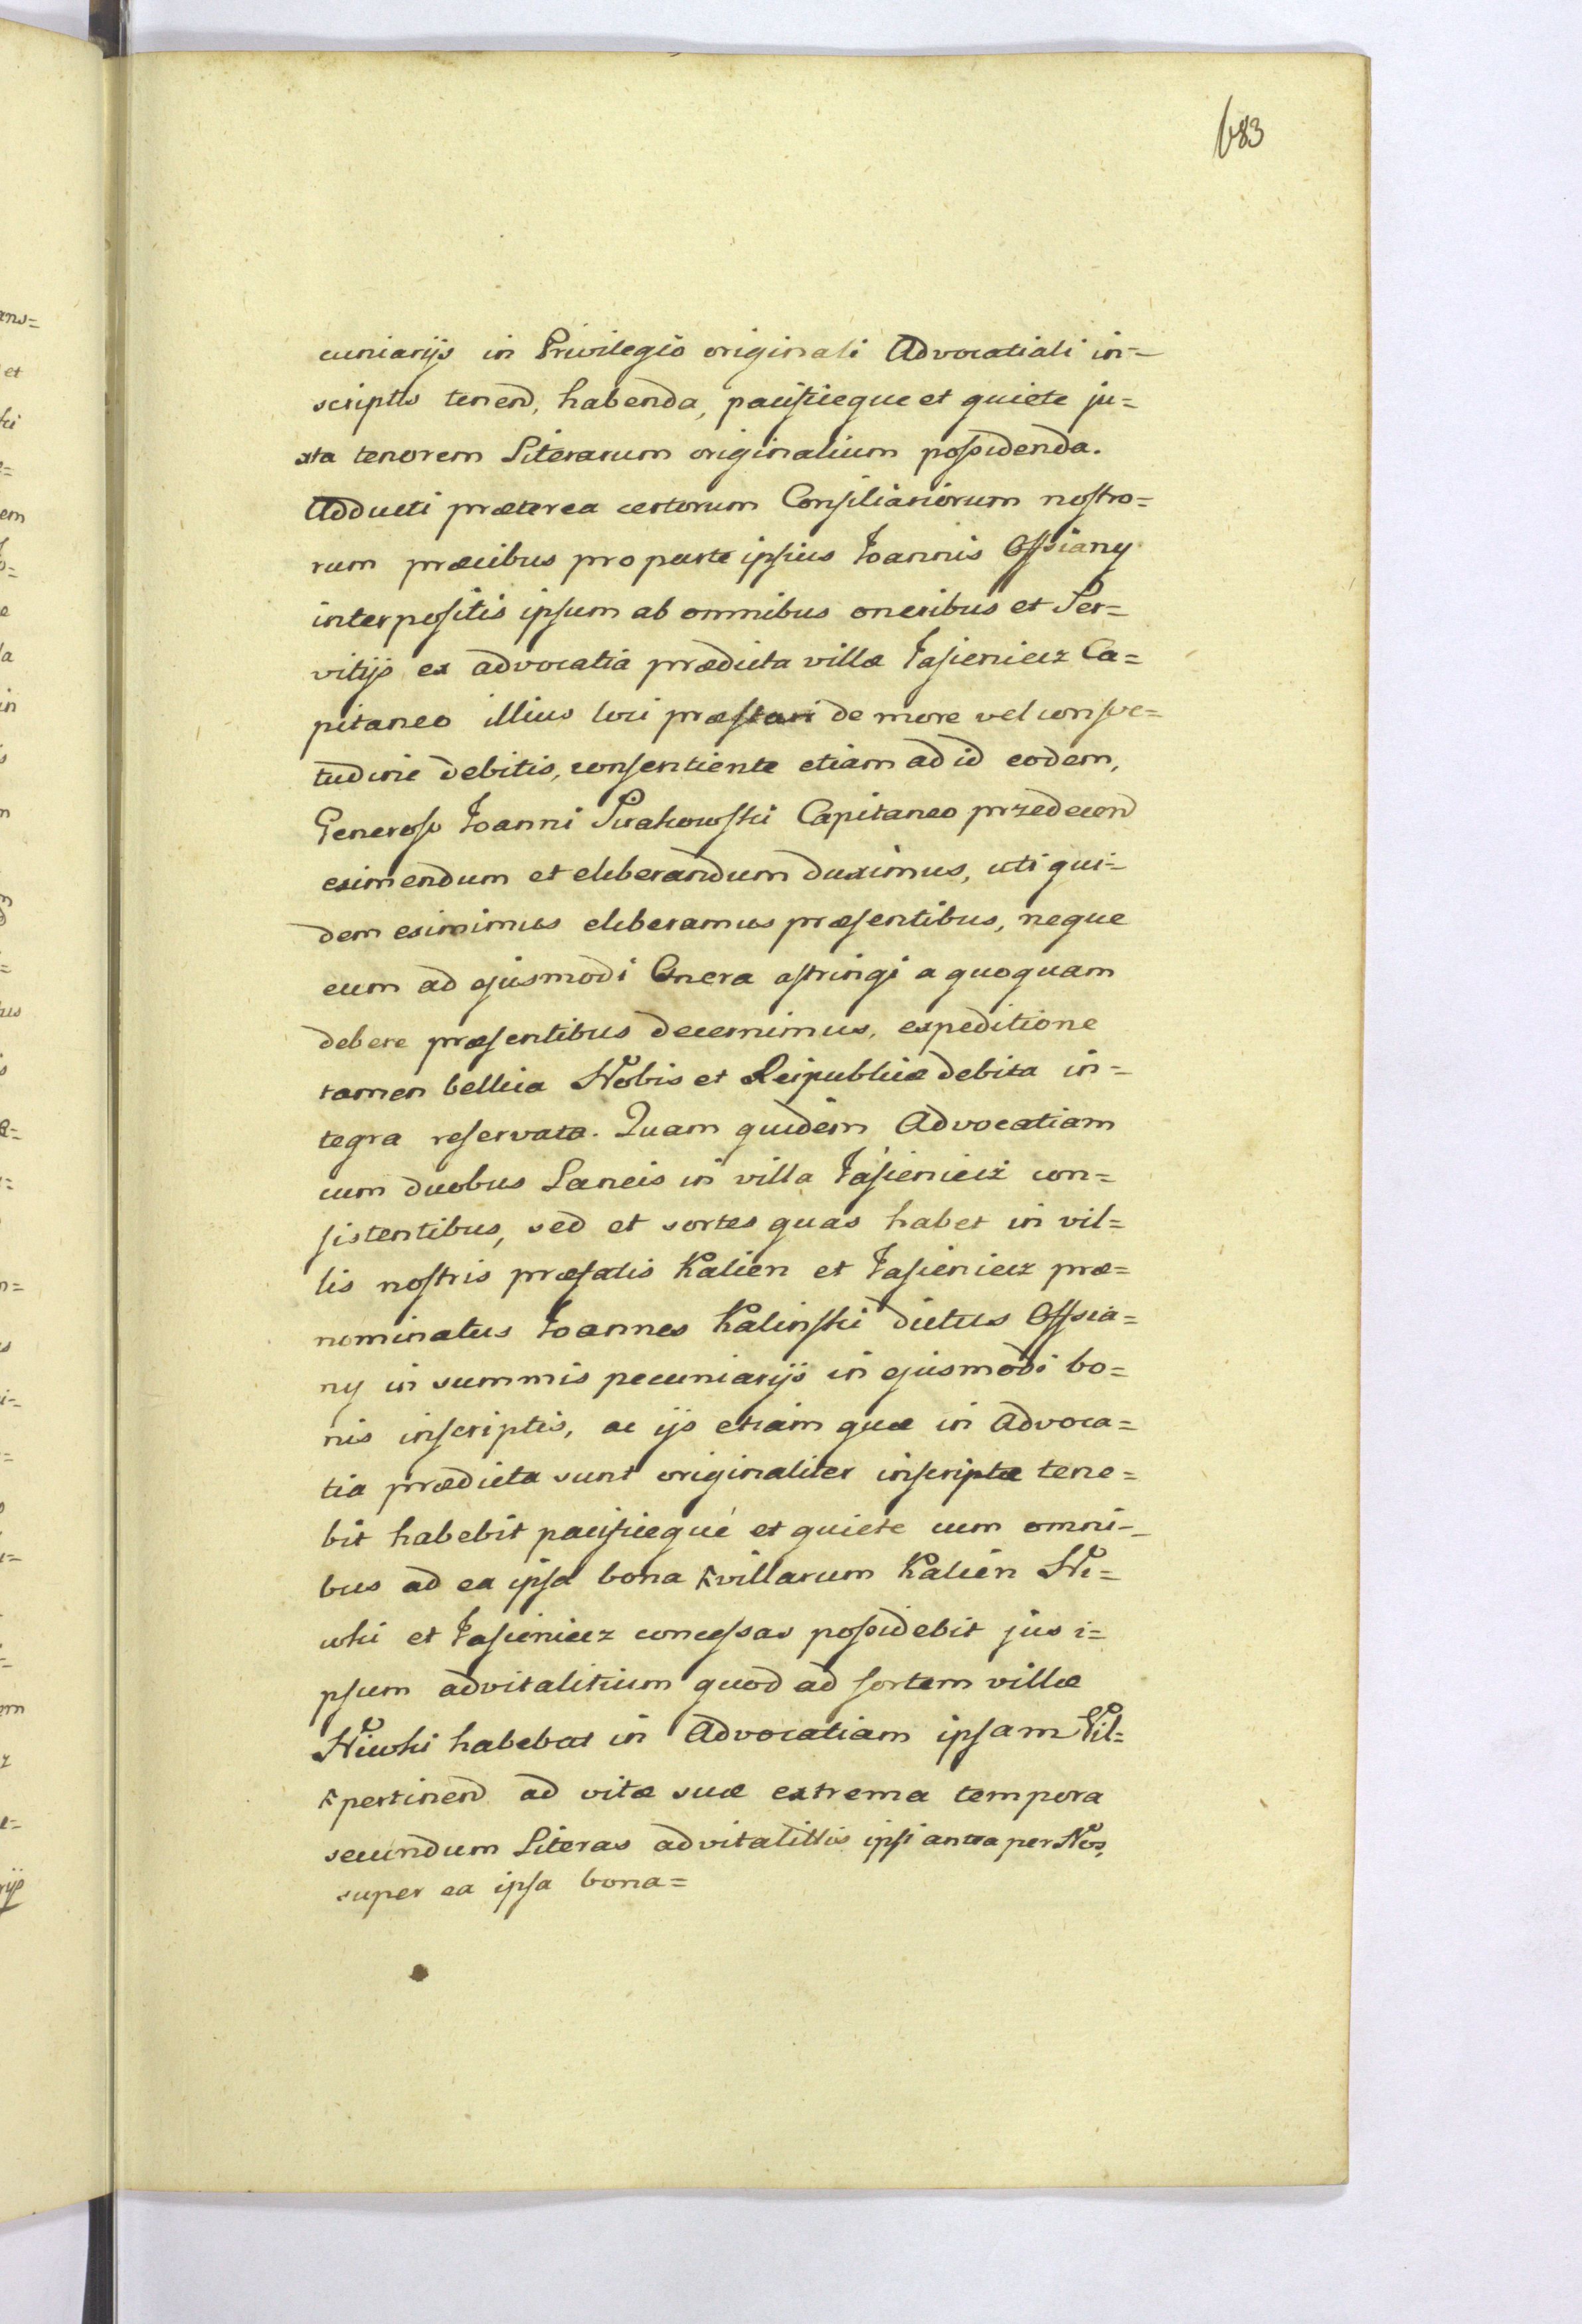 683
cuniarijs in Privilegio originali Advocatiali in=
scriptis tenend, habenda, pacificeque et quiete ju=
xta tenorem Literarum originalium possidenda.
Adducti præterea certorum Consiliariorum nostro=
rum præcibus pro parte ipsius Joannis Ossiany
interpositis ipsum ab omnibus oneribus et Ser=
vitijs ex advocatia prædicta villæ Jasieniecz Ca=
pitaneo illius loci præstari de more vel consve=
tudine debitis, consentiente etiam ad id eodem,
Generoso Joanni Sirakowski Capitaneo przedecen
eximendum et eliberandum duximus, uti qui=
dem eximimus eliberamus præsentibus, neque
eum ad ejusmodi Onera astringi a quoquam
debere præsentibus decernimus, expeditione
tamen bellica Nobis et Reipublicæ debita in=
tegra reservata. Quam quidem Advocatiam
cum duobus Laneis in villa Jasienieiz con=
sistentibus, sed et sortes quas habet in vil=
lis nostris præfatis Kalien et Jasieniecz præ=
nominatus Joannes Kalinski dictus Ossia=
ny in summis pecuniarijs in ejusmodi bo=
nis inscriptis, ac ijs etiam quæ in Advoca=
tia prædicta sunt originaliter inscriptæ tene=
bit habebit pacificequè et quiete cum omni=
bus ad ea ipsa bona villarum Kalien Ni=
wki et Jasieniecz concessas possidebit jus i=
psum advitalitium quod ad sortem villæ
Niwki habebat in Advocatiam ipsam Vil=
pertinend ad vitæ suæ extrema tempora
secundum Literas advitalitiis ipsi antea per Nos
super ea ipsa bona=